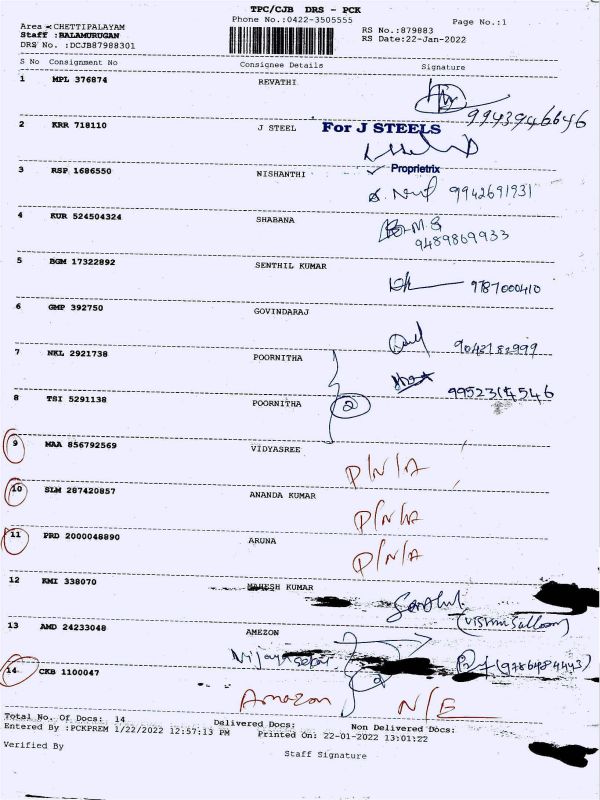 TPC/CJB DRS - PCK
Phone No.:0422-3505555
Page No.:1
Area - CHETTIPALAYAM
Staff :BALAMURUGAN
RS No.:879883
DRS No. :DCJB87988301
RS Date:22-Jan-2022
S No Consignment No Consignee Details Signature
1 MPL 376874 REVATHI
9943946646
2 KRR 718110 J STEEL For J STEELS
Proprietrix
3 RSP 1686550 NISHANTHI
9942691931
4 KUR 524504324 SHABANA
9489869933
5 BGM 17322892 SENTHIL KUMAR
9787000410
6 GMP 392750 GOVINDARAJ
7 NKL 2921738 POORNITHA
8 TSI 5291138 POORNITHA
2
9 MAA 856792569 VIDYASREE
P/N/A
10 SLM 287420857 ANANDA KUMAR
P/N/A
11 PRD 2000048890 ARUNA
P/N/A
12 KMI 338070 MAHESH KUMAR
13 AMD 24233048 AMEZON
14 CKB 1100047
Amazon N/E
Total No. Of Docs: 14 Delivered Docs: Non Delivered Docs:
Entered By :PCKPREM 1/22/2022 12:57:13 PM Printed On: 22-01-2022 13:01:22
Verified By
Staff Signature